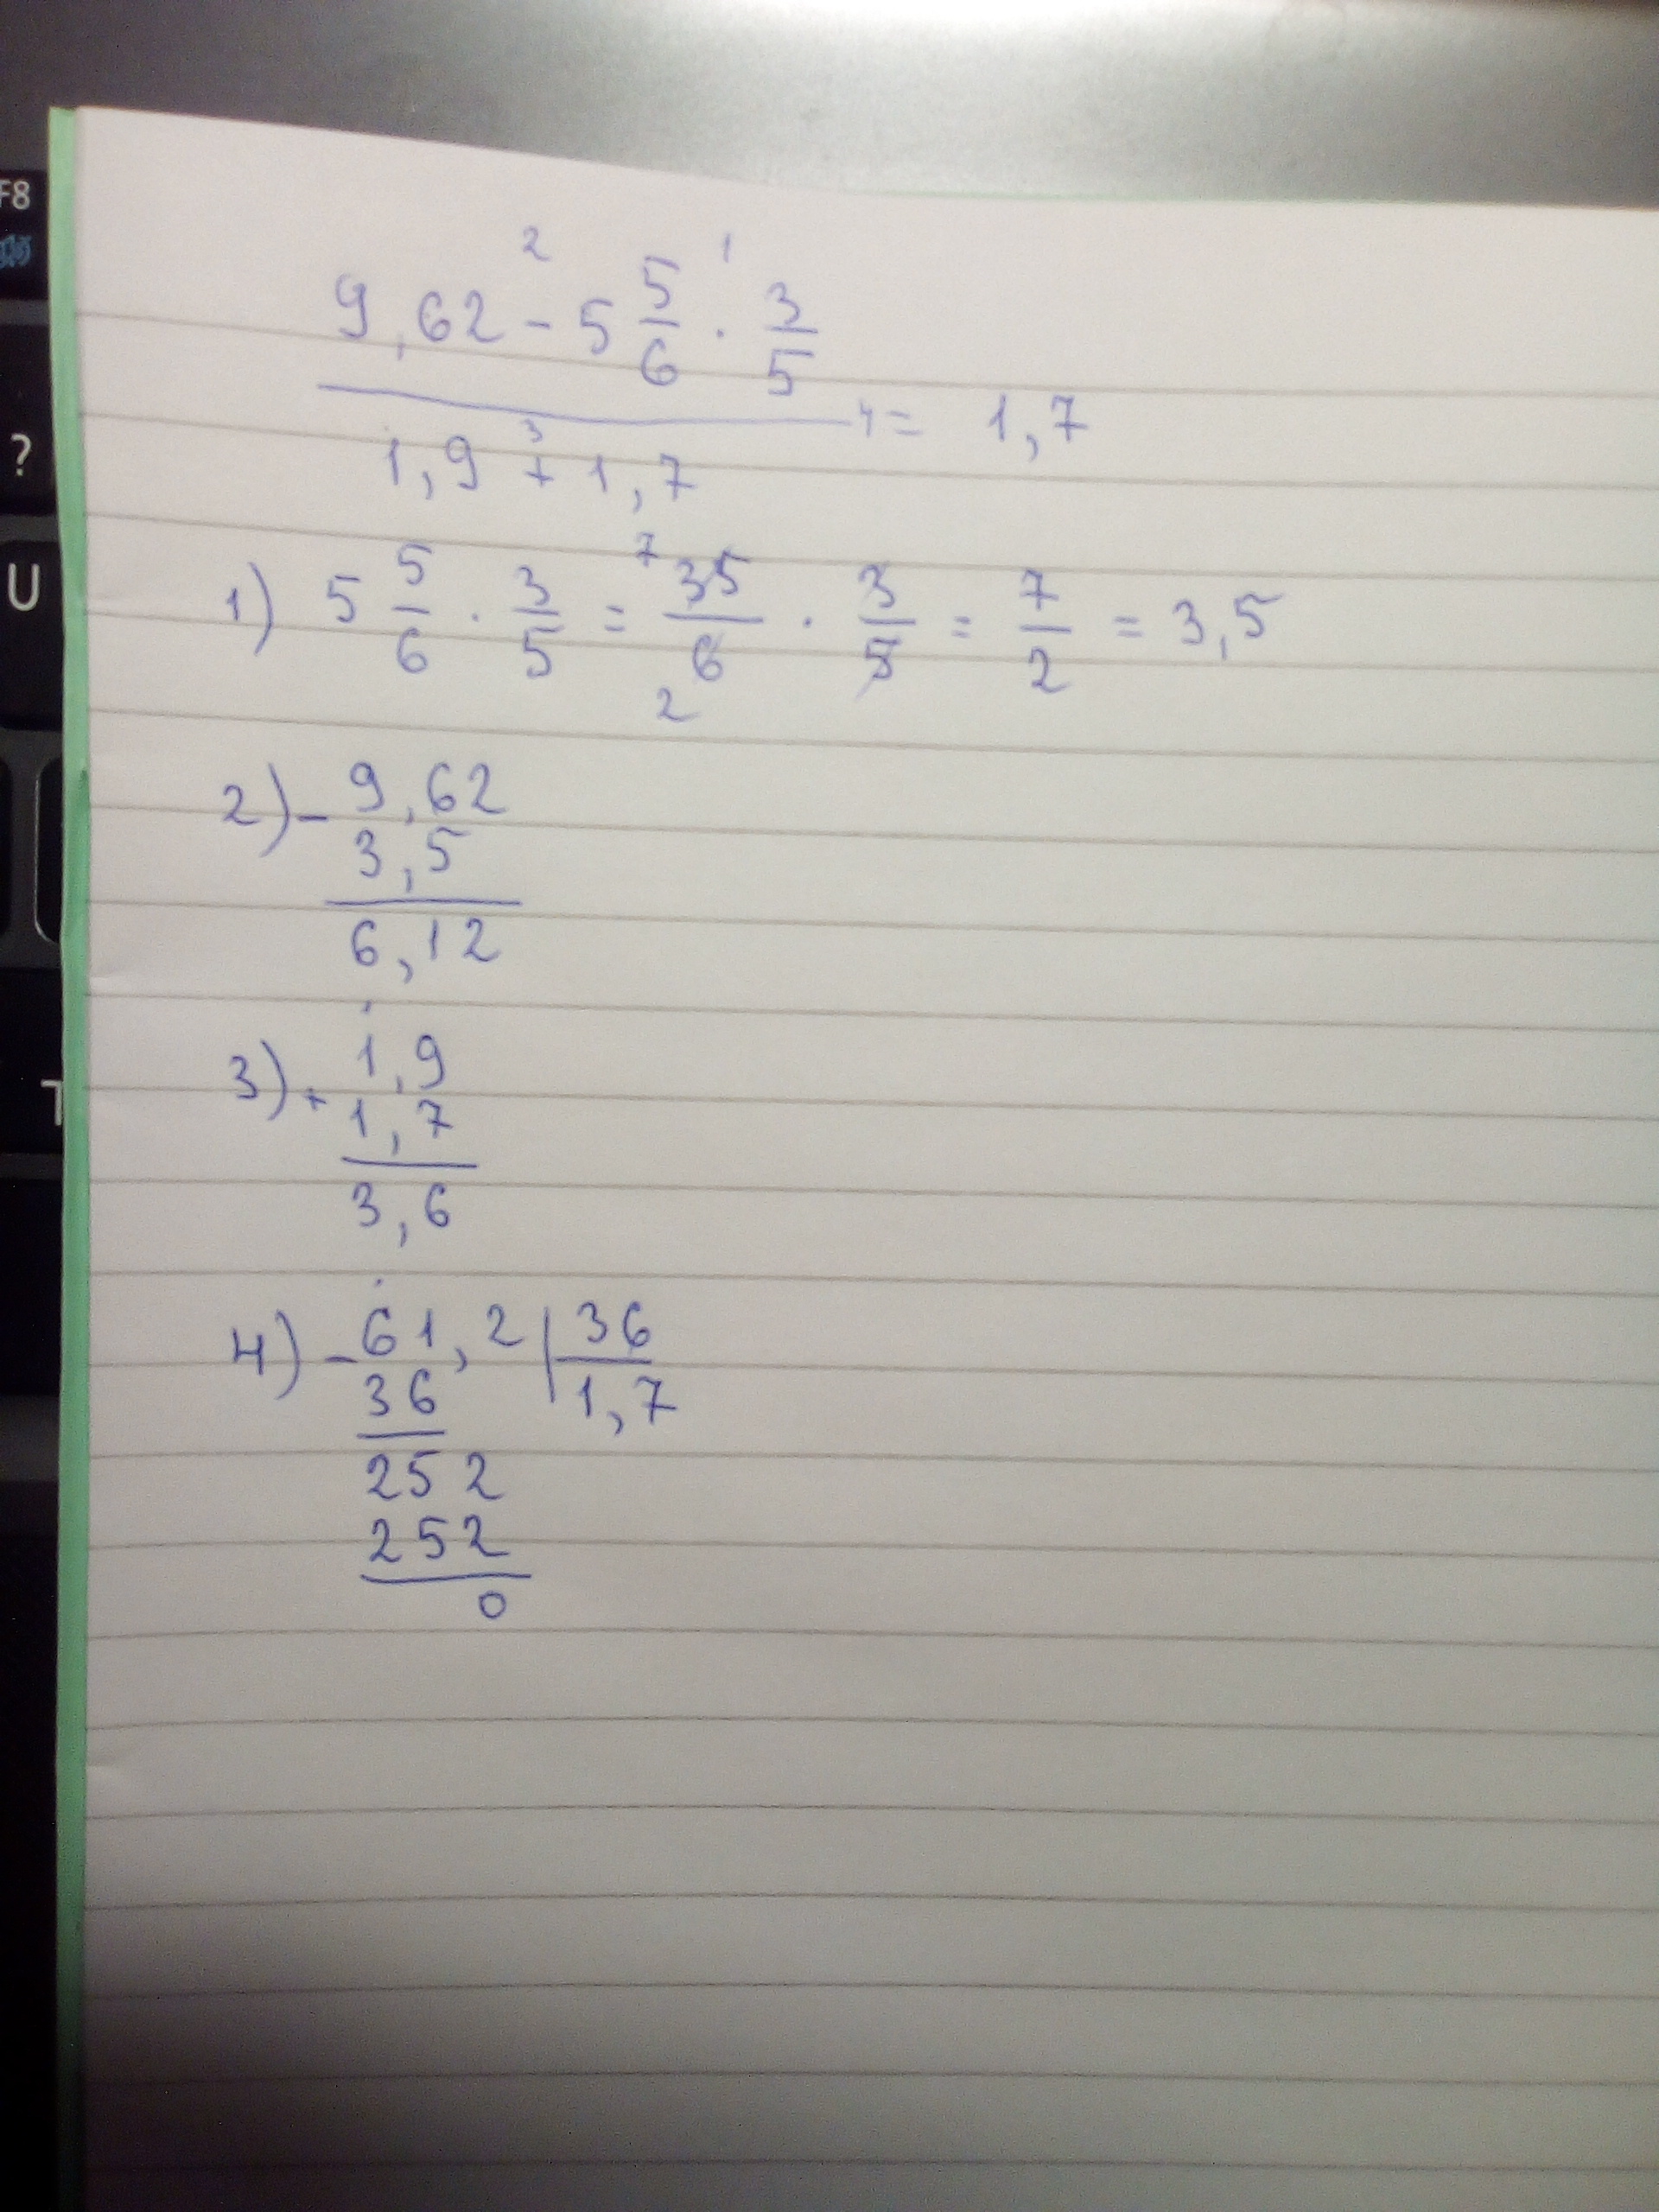 F8
?
U
T
2 1
9,62 - 5 5/6 · 3/5
4 = 1,7
3
1,9 + 1,7
1) 5 5/6 · 3/5 = 7 35/6 2 · 3/5 = 7/2 = 3,5
2) - 9,62
3,5
6,12
3) + 1,9
1,7
3,6
4) - 61,2 | 36
36 1,7
252
252
0